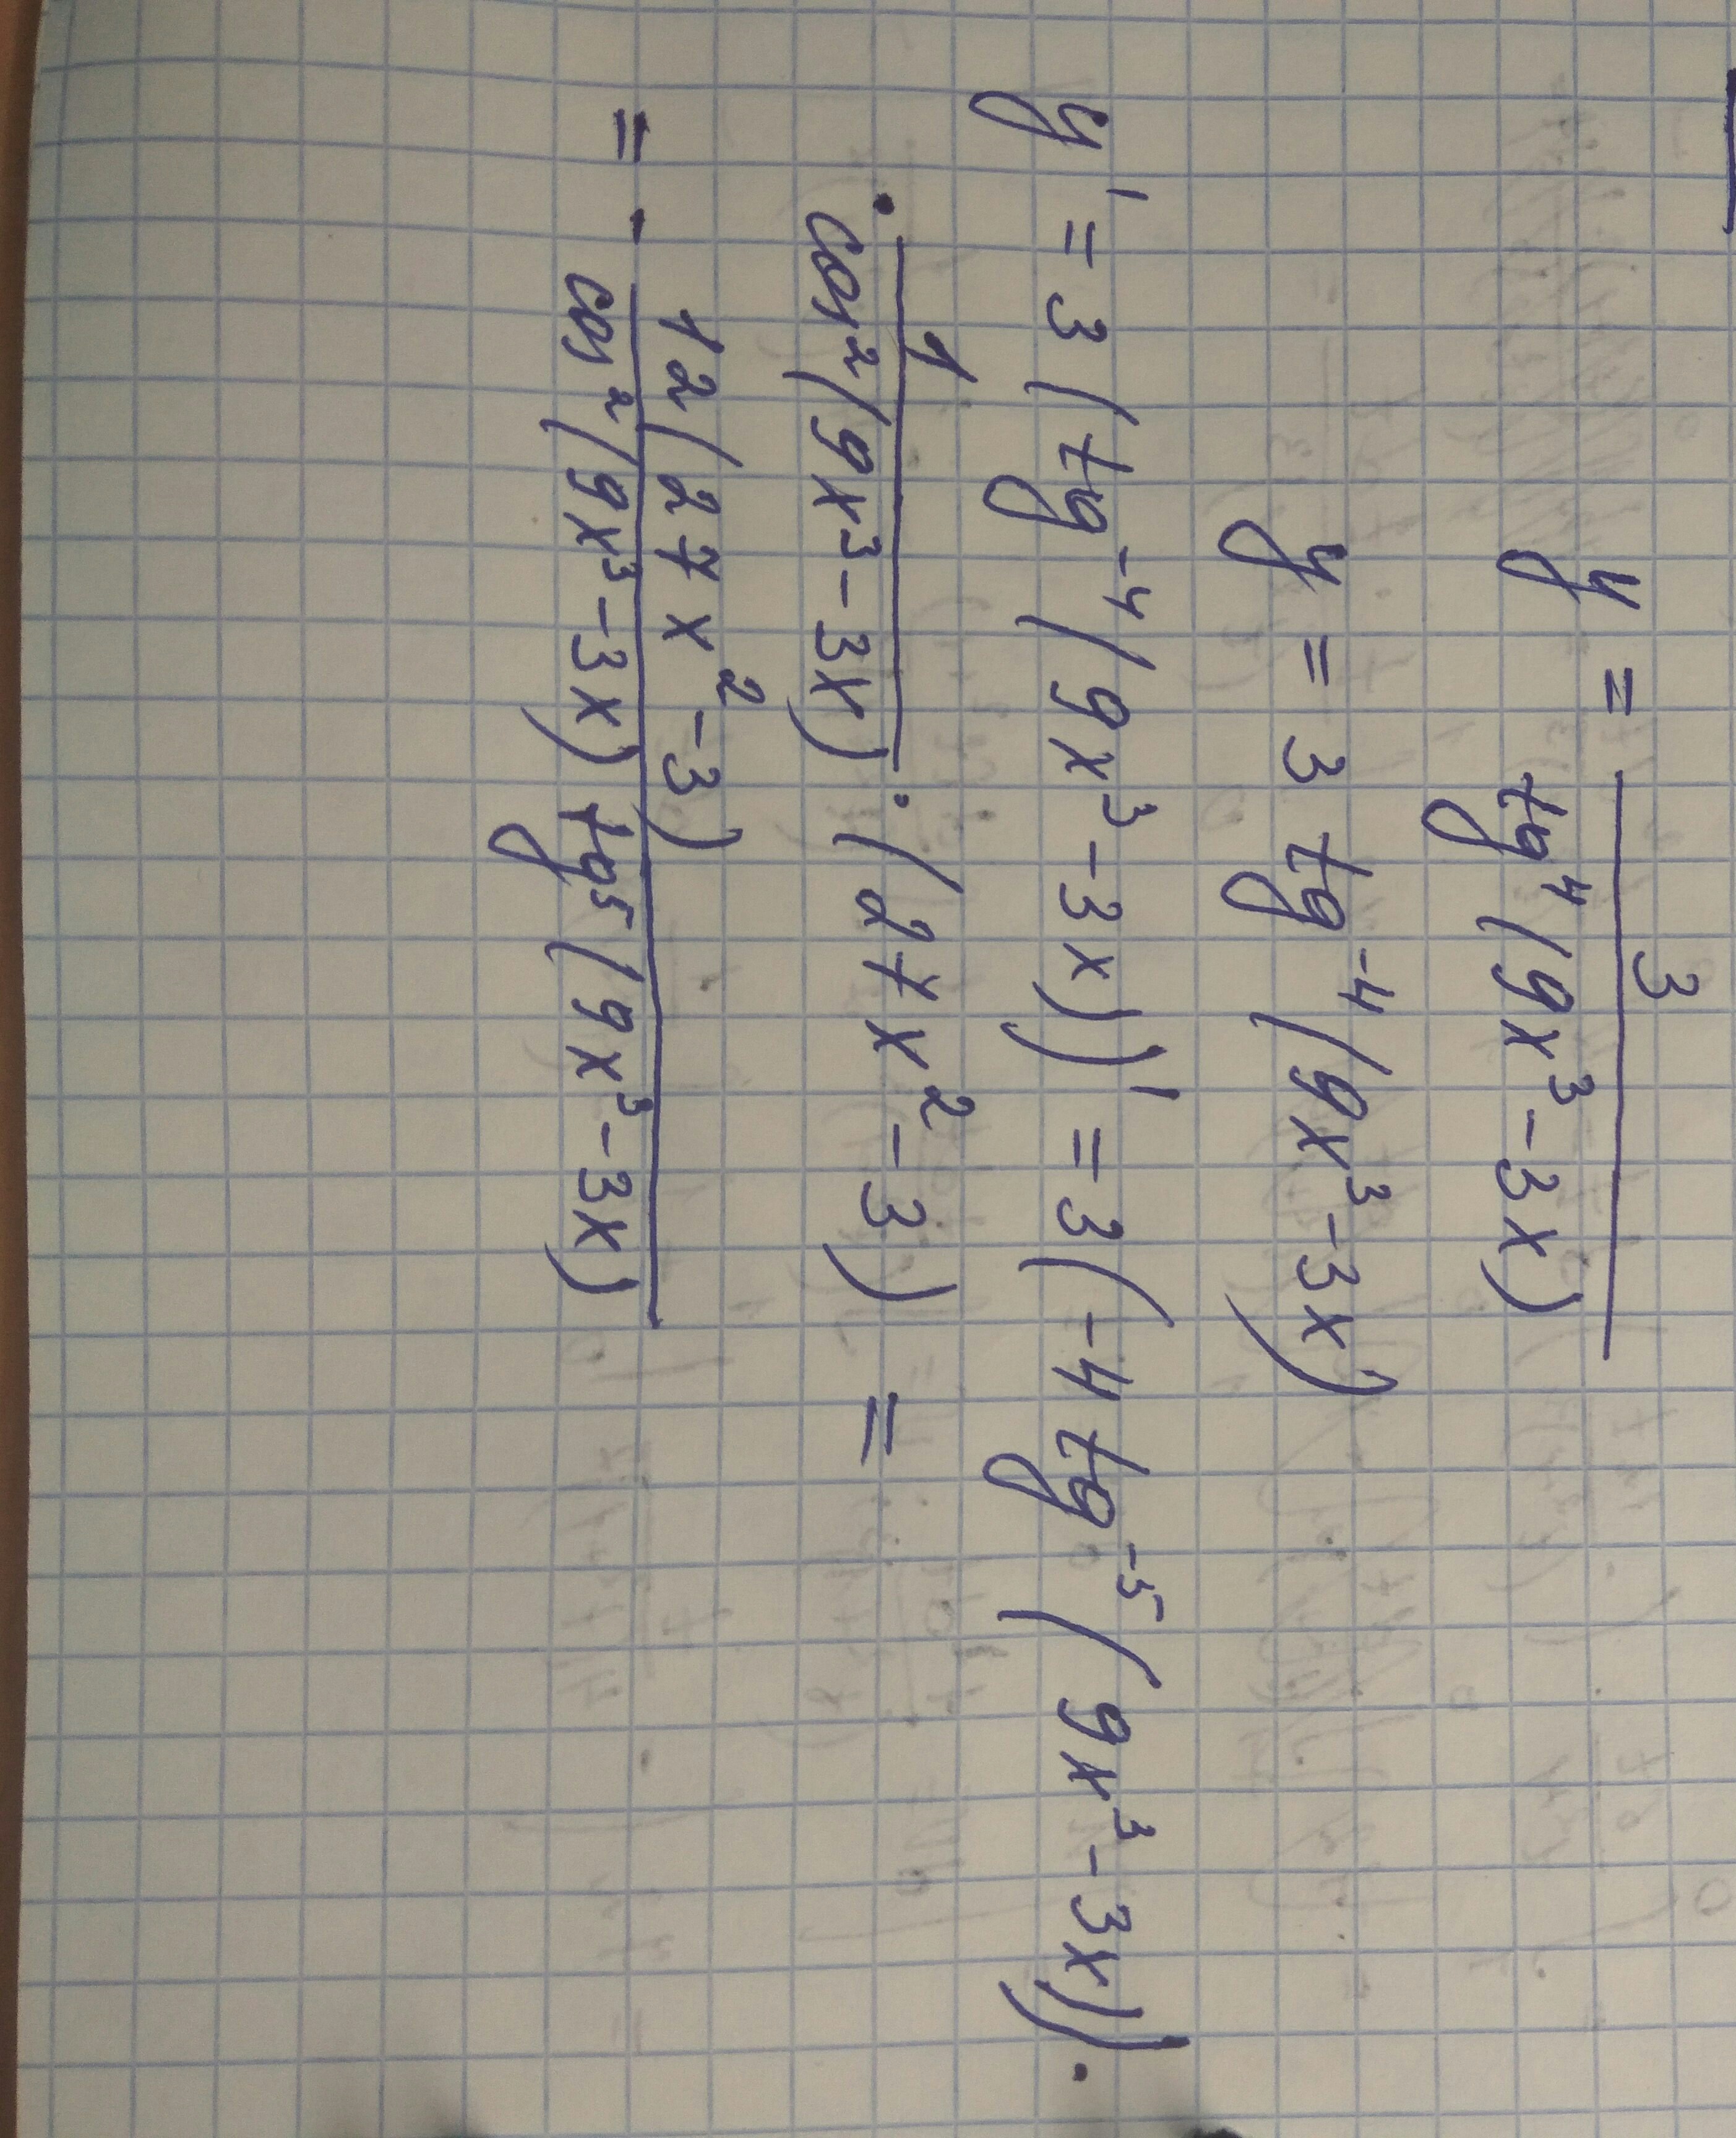 y = 3 / tg⁴(9x³ - 3x)
y = 3 tg⁻⁴(9x³ - 3x)
y' = 3(tg⁻⁴(9x³ - 3x))' = 3(-4 tg⁻⁵(9x³ - 3x)) ·
· 1 / cos²(9x³ - 3x) · (27x² - 3) =
= - 12(27x² - 3) / cos²(9x³ - 3x) tg⁵(9x³ - 3x)